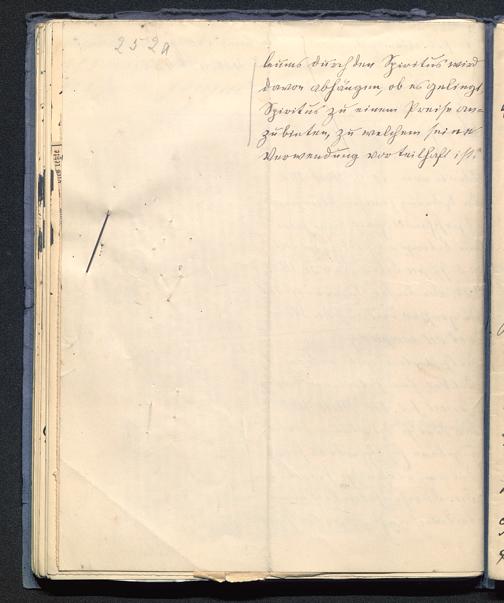 252a
leums durch den Spiritus wird
davon abhängen, ob es gelingt
Spiritus zu einem Preise an-
zubieten, zu welchem seine
Verwendung vorteilhaft ist."